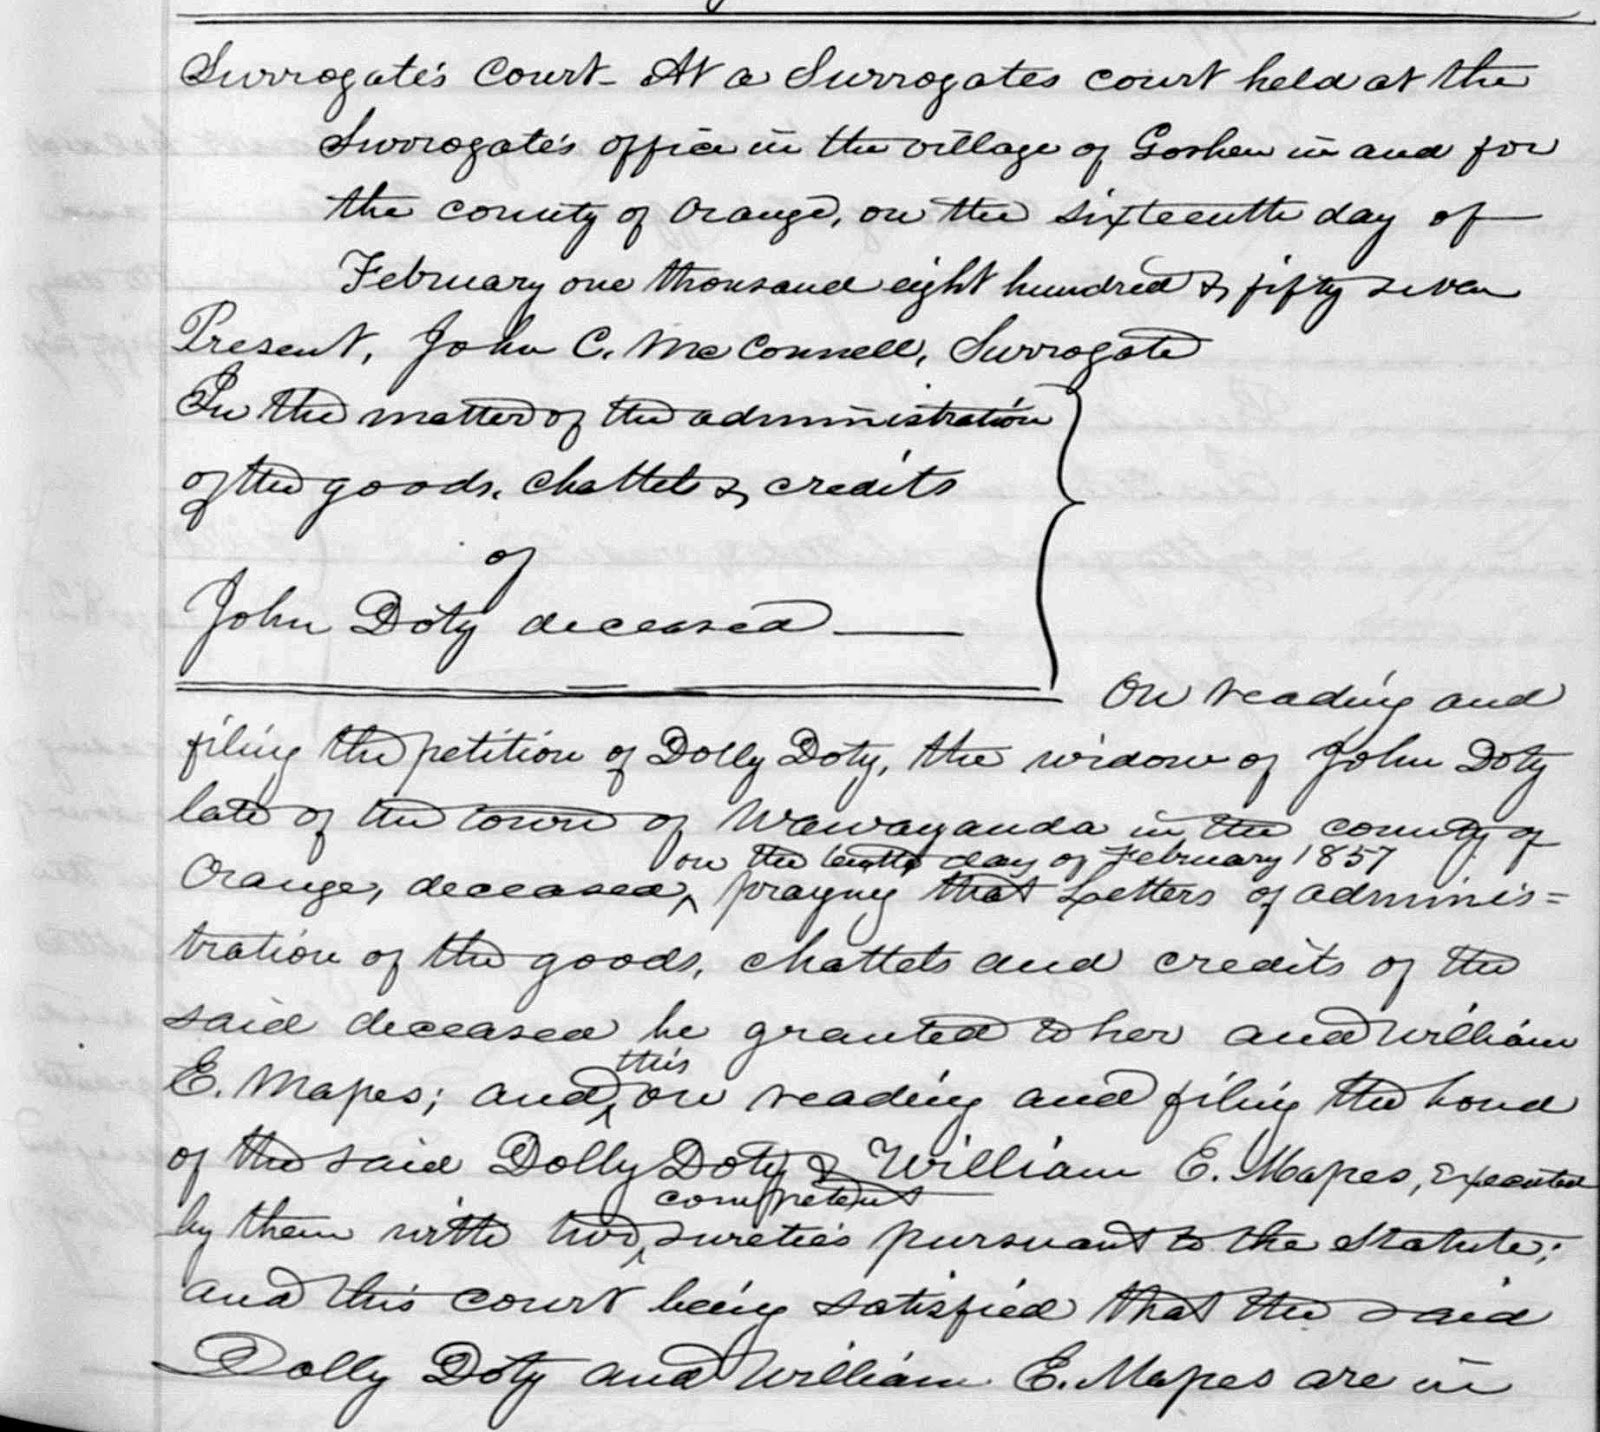 Surrogate's Court - At a Surrogates court held at the
Surrogate's office in the village of Goshen in and for
the county of Orange, on the sixteenth day of
February one thousand eight hundred & fifty seven
Present, John C. McConnell, Surrogate
In the matter of the administration
of the goods, chattels & credits
of
John Doty deceased
On reading and
filing the petition of Dolly Doty, the widow of John Doty
late of the town of Wawayanda in the county of
on the tenth day of February 1857
Orange, deceased, ^ praying that Letters of adminis=
tration of the goods, chattels and credits of the
said deceased be granted to her and William
this
E. Mapes; and ^ on reading and filing the bond
of the said Dolly Doty & William E. Mapes, Executed
competent
by them with two ^ sureties pursuant to the statute;
and this court being satisfied that the said
Dolly Doty and William E. Mapes are in